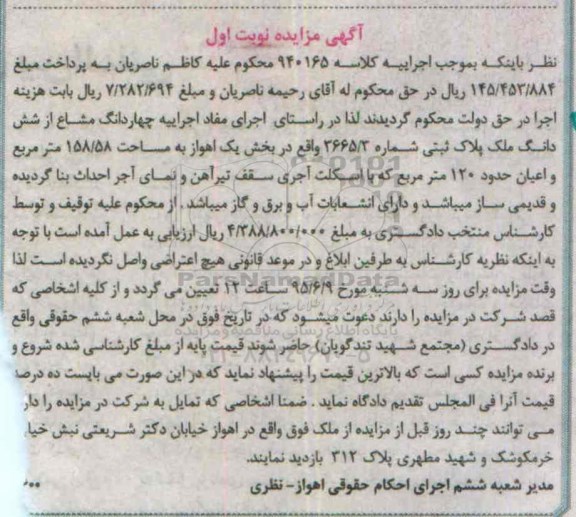 آگهی مزایده نوبت اول
نظر باینکه بموجب اجراییه کلاسه ۹۴۰۱۶۵ محکوم علیه کاظم ناصریان به پرداخت مبلغ
۱۴۵/۴۵۳/۸۸۴ ریال در حق محکوم له آقای رحیمه ناصریان و مبلغ ۷/۲۸۲/۶۹۴ ریال بابت هزینه
اجرا در حق دولت محکوم گردیدند لذا در راستای اجرای مفاد اجراییه چهاردانگ مشاع از شش
دانگ ملک پلاک ثبتی شماره ۳۶۶۵/۳ واقع در بخش یک اهواز به مساحت ۱۵۸/۵۸ متر مربع
و اعیان حدود ۱۲۰ متر مربع که با اسکلت آجری سقف تیرآهن و نمای آجر احداث بنا گردیده
و قدیمی ساز میباشد و دارای انشعابات آب و برق و گاز میباشد . از محکوم علیه توقیف و توسط
کارشناس منتخب دادگستری به مبلغ ۴/۳۸۸/۸۰۰/۰۰۰ ریال ارزیابی به عمل آمده است با توجه
به اینکه نظریه کارشناس به طرفین ابلاغ و در موعد قانونی هیچ اعتراضی واصل نگردیده است لذا
وقت مزایده برای روز سه شنبه مورخ ۹۵/۶/۹ ساعت ۱۲ تعیین می گردد و از کلیه اشخاصی که
قصد شرکت در مزایده را دارند دعوت میشود که در تاریخ فوق در محل شعبه ششم حقوقی واقع
در دادگستری (مجتمع شهید تندگویان) حاضر شوند قیمت پایه از مبلغ کارشناسی شده شروع و
برنده مزایده کسی است که بالاترین قیمت را پیشنهاد نماید که در این صورت می بایست ده درصد
قیمت آنرا فی المجلس تقدیم دادگاه نماید . ضمنا اشخاصی که تمایل به شرکت در مزایده را
می توانند چند روز قبل از مزایده از ملک فوق واقع در اهواز خیابان دکتر شریعتی نبش
خرمکوشک و شهید مطهری پلاک ۳۱۲ بازدید نمایند.
مدیر شعبه ششم اجرای احکام حقوقی اهواز- نظری